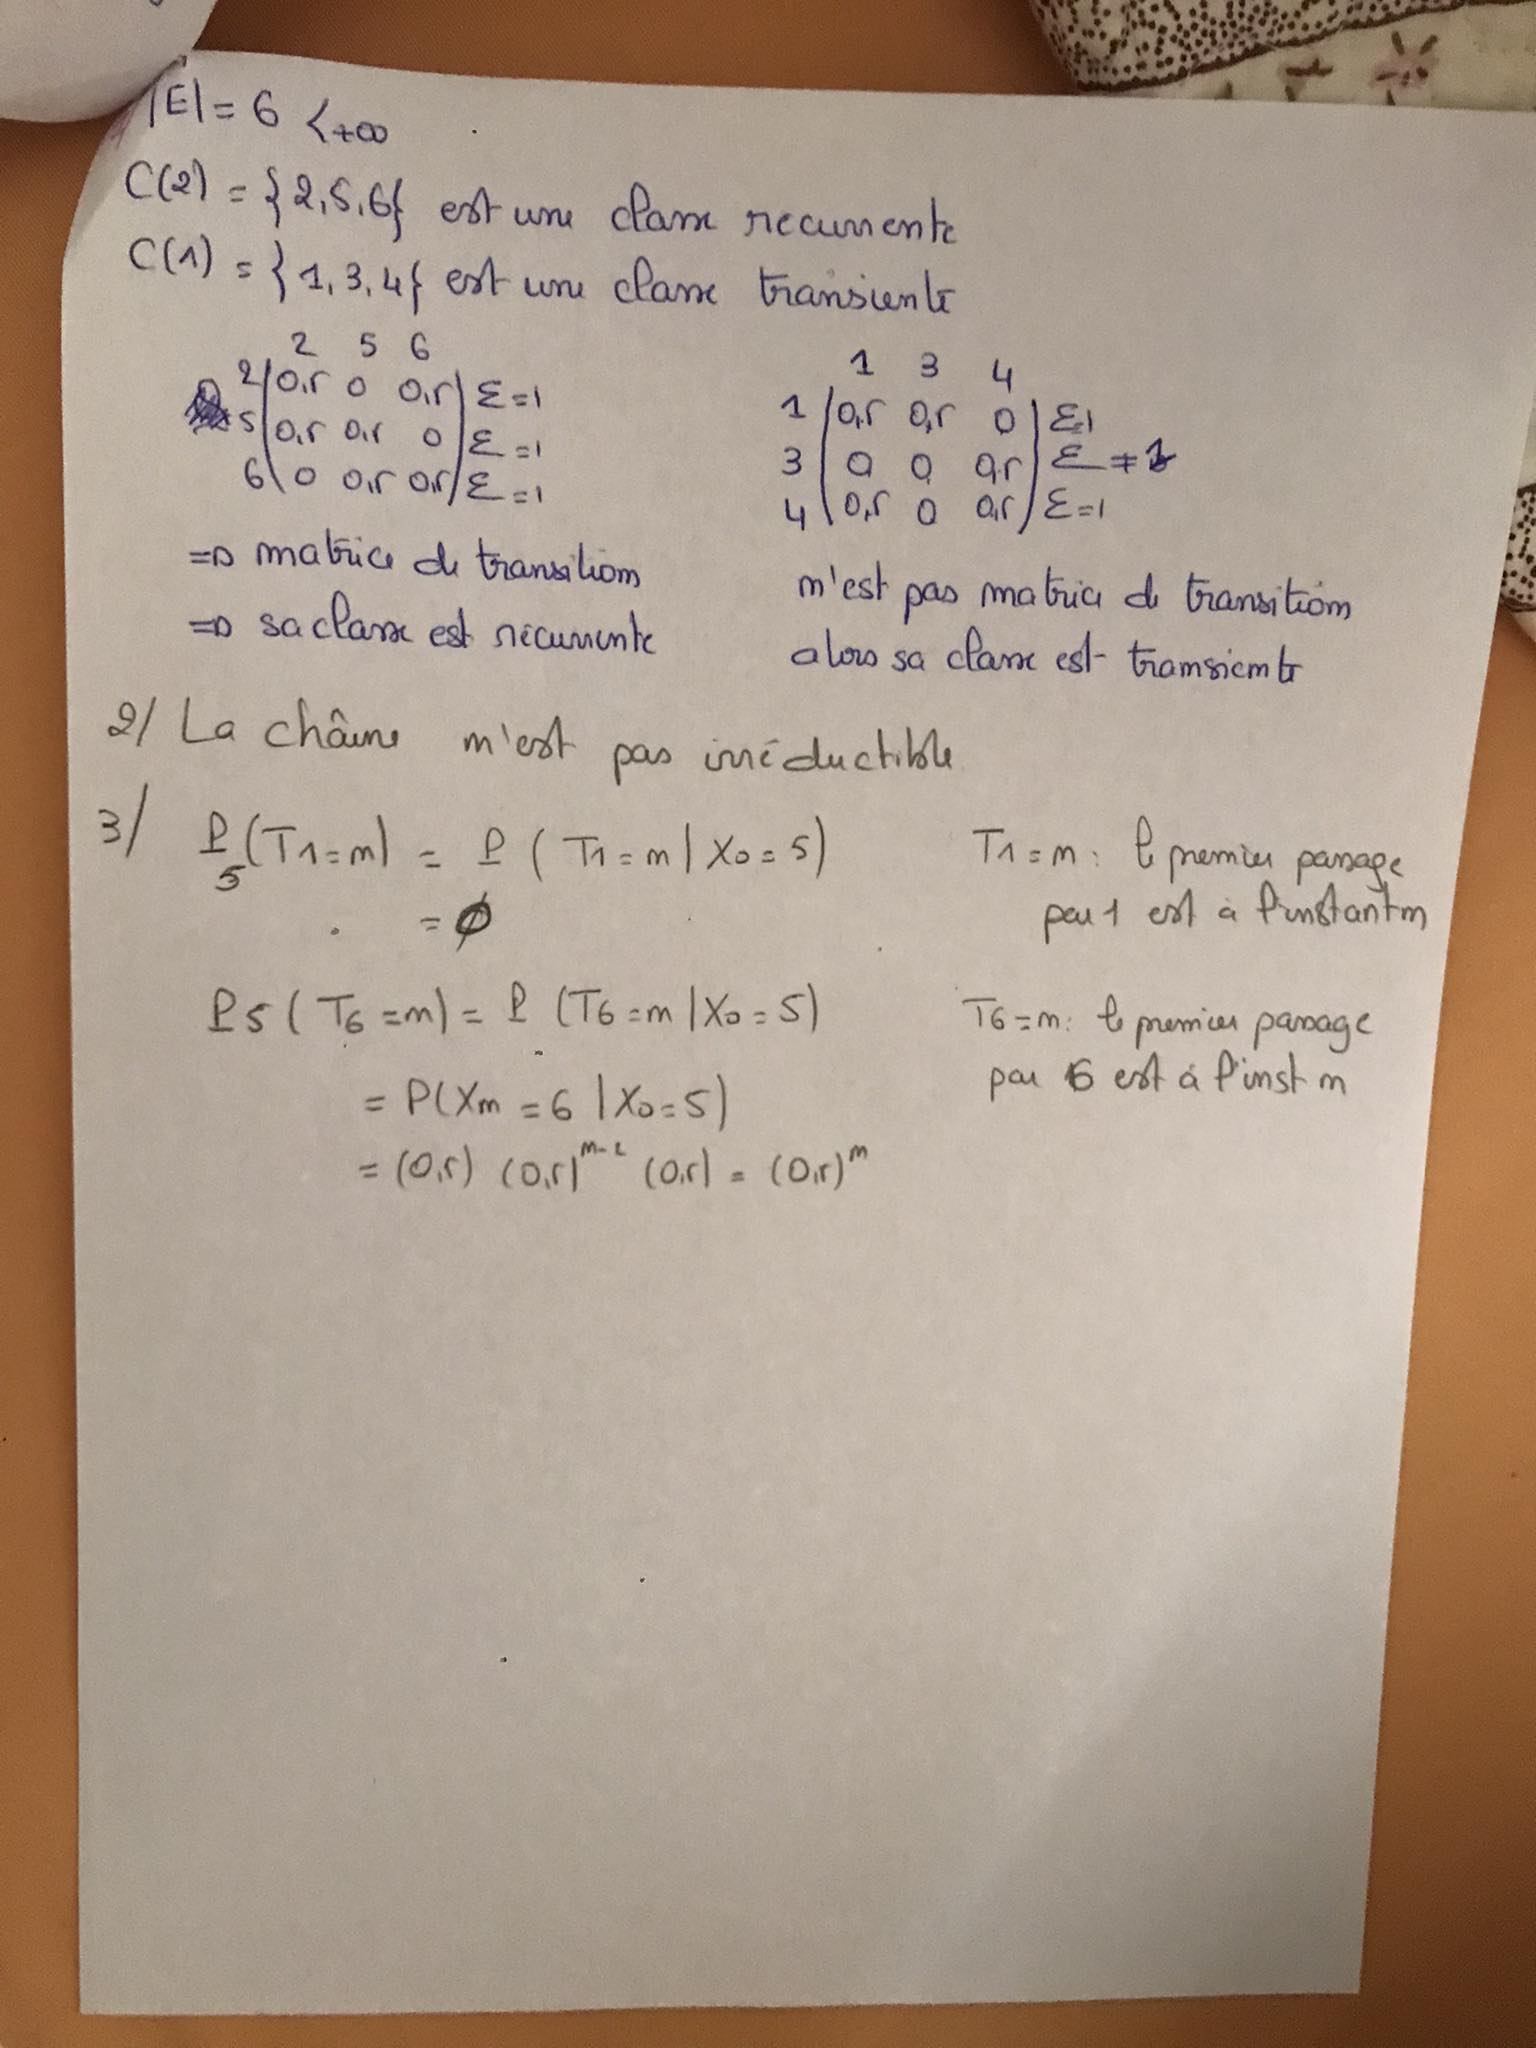 |E| = 6 < +∞
C(2) = {2,5,6} est une classe recurrente
C(1) = {1,3,4} est une classe transiente
2 5 6
2 (0,5 0 0,5) Σ=1
5 (0,5 0,5 0) Σ=1
6 (0 0,5 0,5) Σ=1
=> matrice de transition
=> sa classe est récurrente
1 3 4
1 (0,5 0,5 0) Σ=1
3 (0 0 0,5) Σ ≠ 1
4 (0,5 0 0,5) Σ=1
n'est pas matrice de transition
alors sa classe est transiente
2/ La chaîne n'est pas irréductible
3/ P5(T1=n) = P(T1=n | X0=5)
= 0
T1=n: le premier passage
par 1 est à l'instant n
P5(T6=n) = P(T6=n | X0=5)
= P(Xn=6 | X0=5)
= (0,5) (0,5)^n-2 (0,5) = (0,5)^n
T6=n: le premier passage
par 6 est à l'inst n